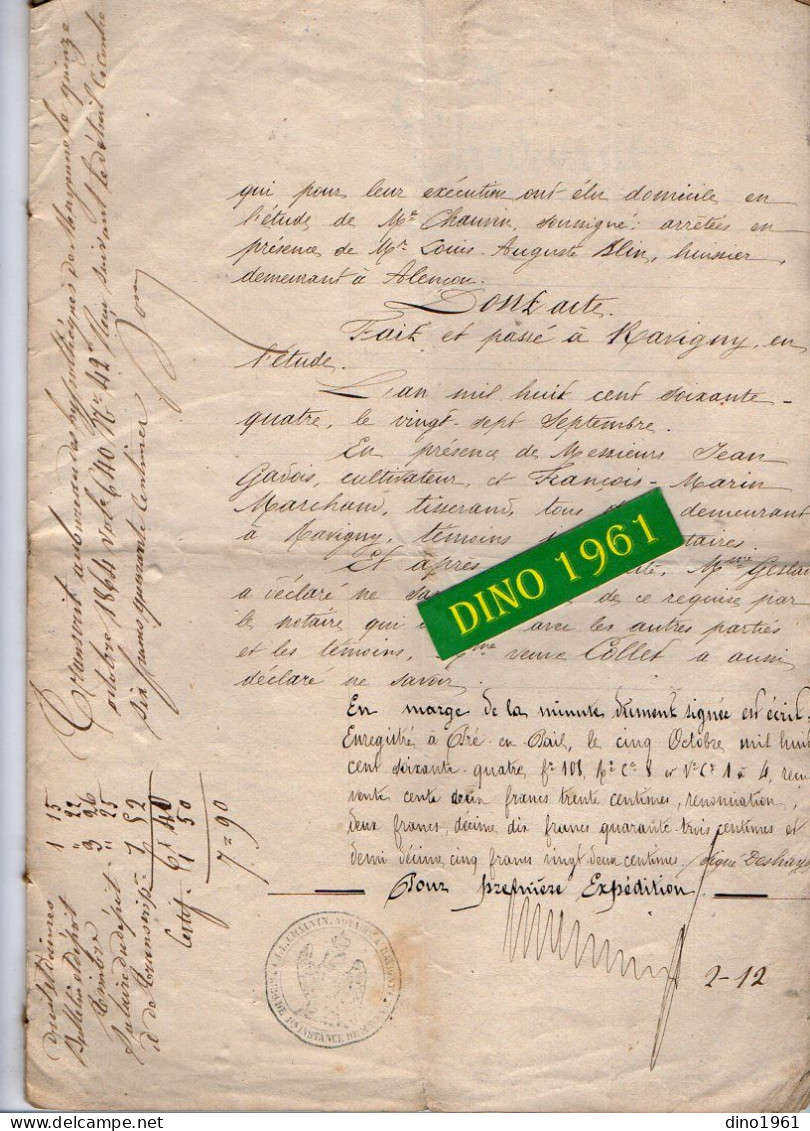 qui pour leur exécution ont élu domicile en
l'étude de Me Chauvin, soussigné : arrêtées en
présence de Mr Louis-Auguste Blin, huissier,
demeurant à Alençon.
Dont acte.
Fait et passé à Ravigny, en
l'étude.
L'an mil huit cent soixante-
quatre, le vingt-sept Septembre.
En présence de Messieurs Jean
Gadois, cultivateur, et François-Marin
Marchand, tisserand, tous demeurant
à Ravigny, témoins taires.
Et après Mme Geslai
a déclaré ne sa de ce requise par
le notaire qui avec les autres parties
et les témoins, me veuve Collet a aussi
déclaré ne savoir.
En marge de la minute dûment signée est écrit
Enregistré à Pré-en-Pail, le cinq Octobre mil huit
cent soixante-quatre, fo 108, Ro Ce 8 et Vo Ce 1 à 4, reçu
vente cent deux francs trente centimes, renonciation,
deux francs, décime dix francs quarante-trois centimes et
demi décime cinq francs vingt deux centimes. signé Deshays
Pour première Expédition
2-12
DINO 1961
Transcrit au bureau des hypothèques de Mayenne le quinze
octobre 1864 Vole 640 No 42 Reçu suivant le détail ci-contre
six francs quarante centimes
droits divers 1 15
Bulletin et dépôt " 22
Timbre 3 96
Salaire du dépôt " 25
id de Transcrip. " 82
6 40
Certif. 1 50
7 = 90
CHAUVIN, NOTAIRE
INSTANCE DE
dino1961